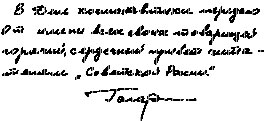 В День космонавтики передаю
от имени всех своих товарищей
горячий, сердечный привет чита-
телям „Советской России."
Гагарин